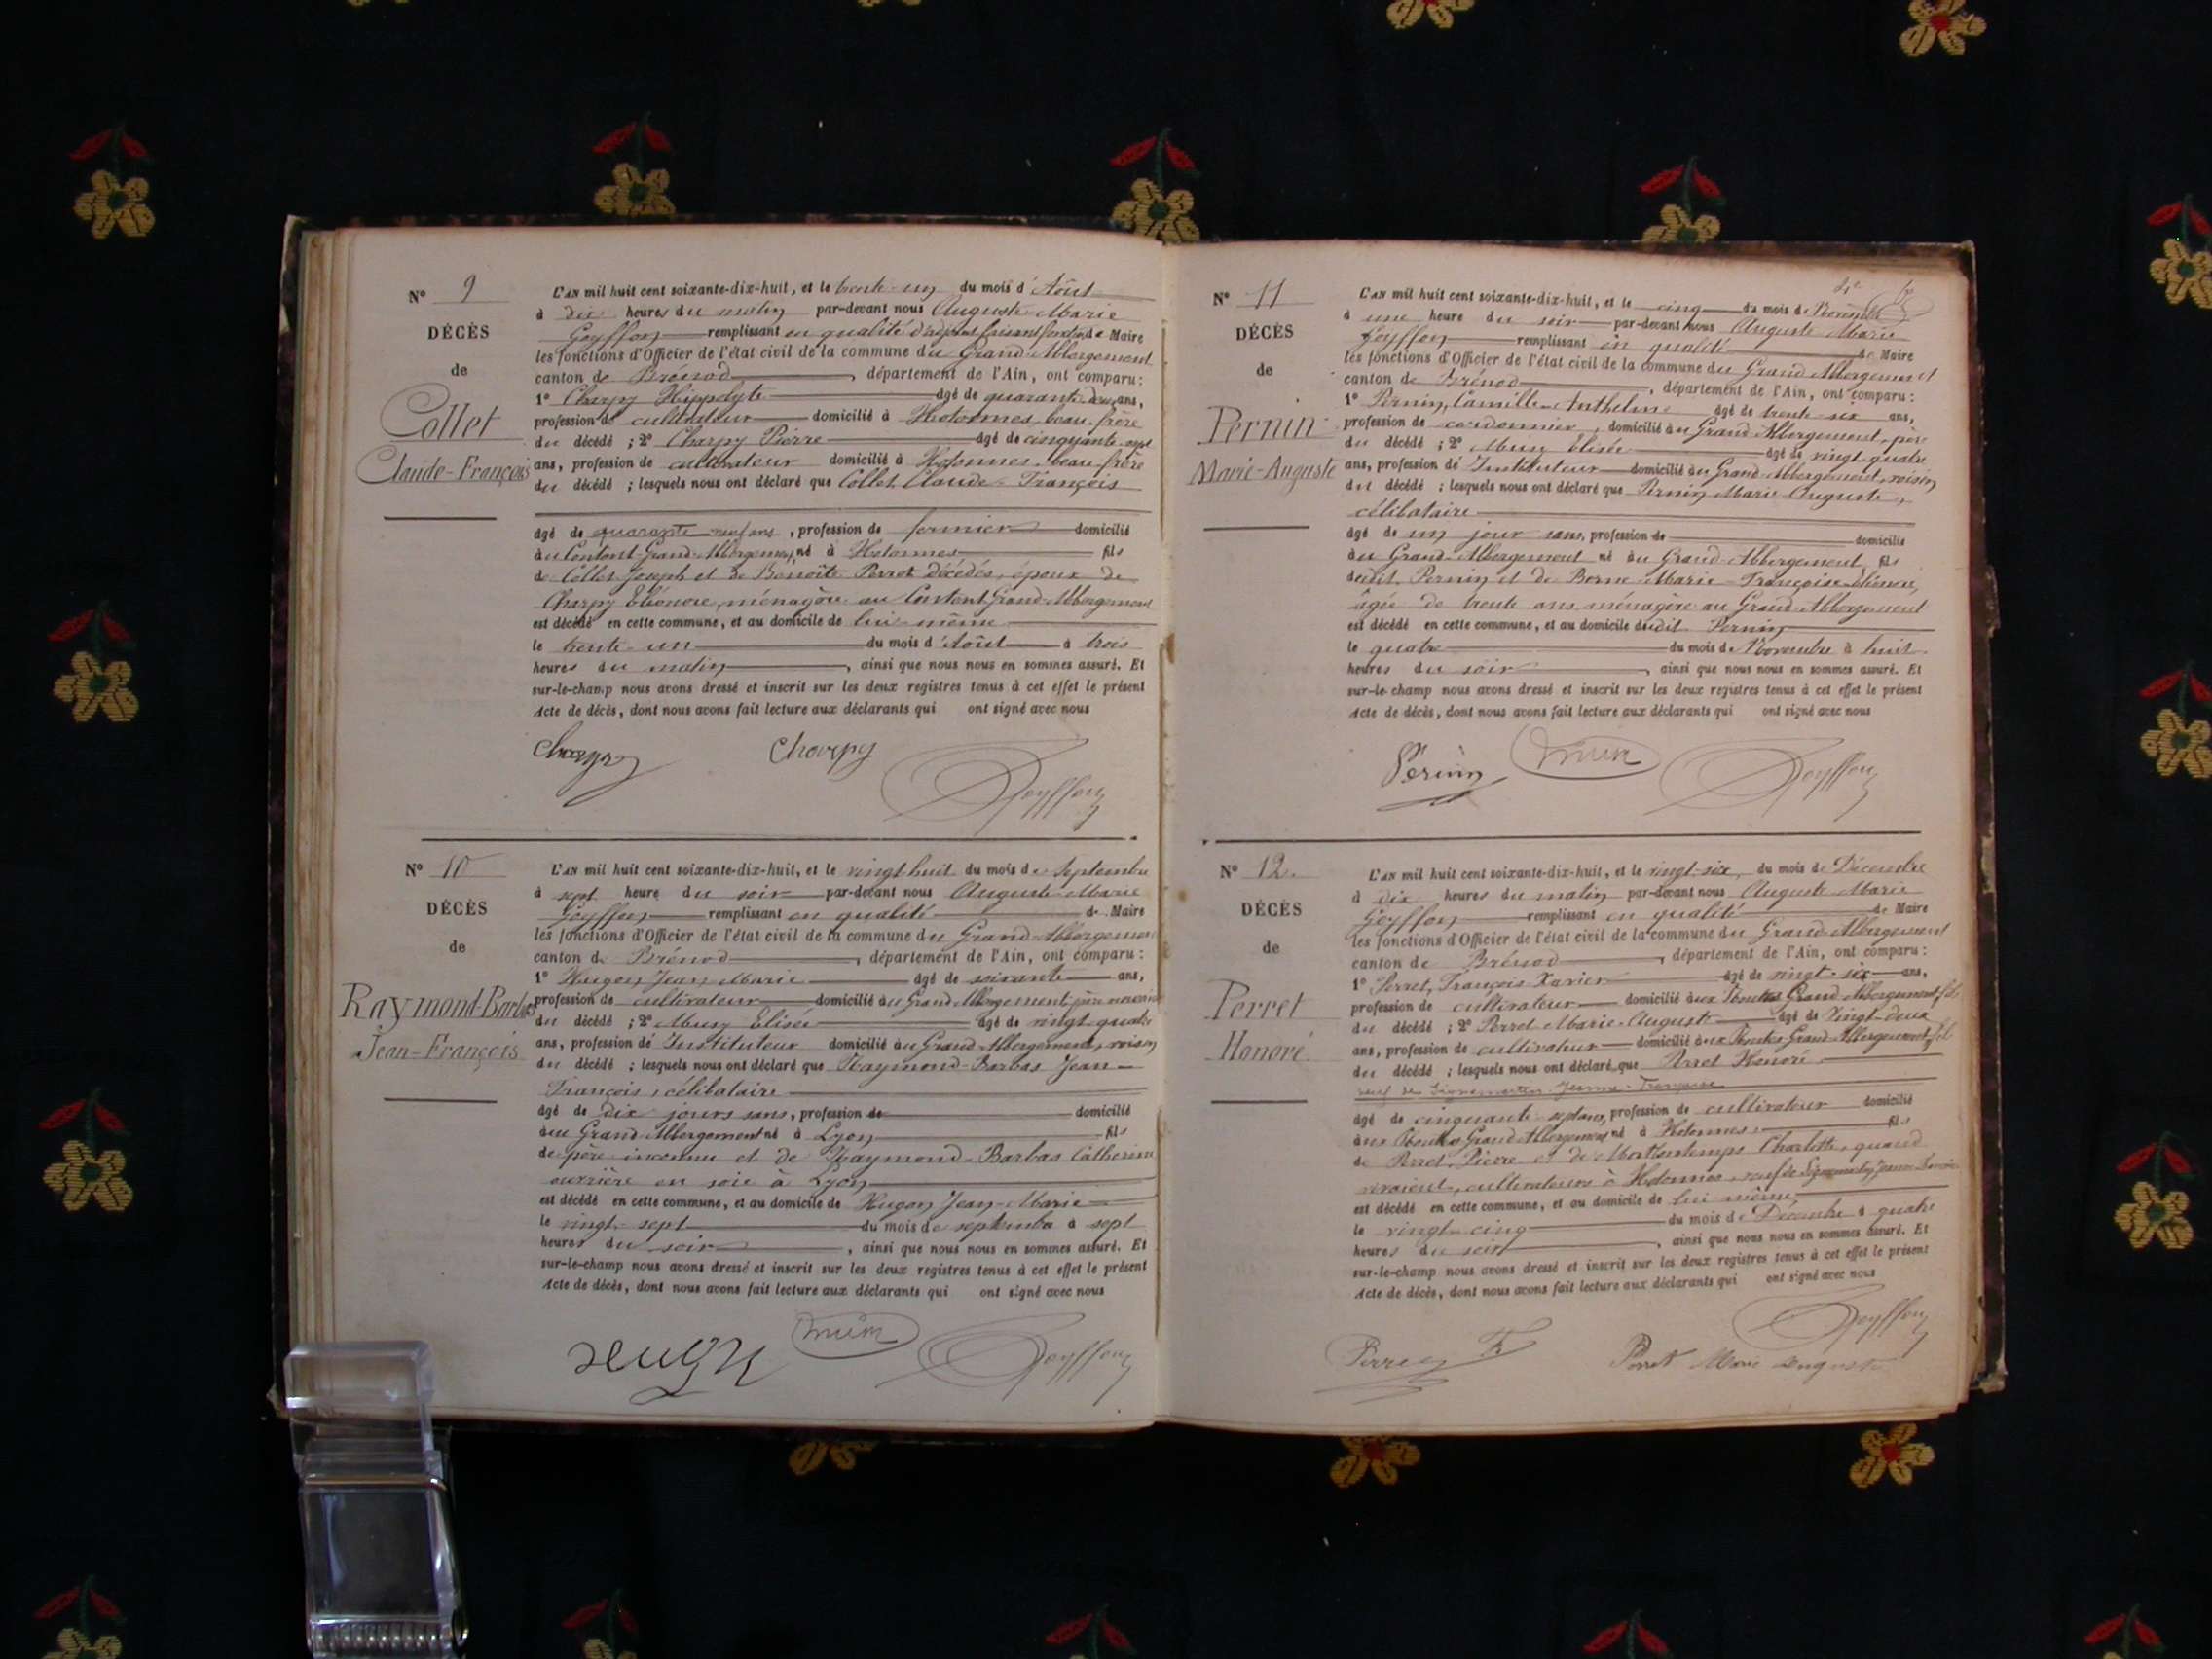 N° 9
DÉCÈS
de
Collet
Claude-François
L'AN mil huit cent soixante-dix-huit, et le trente-un du mois d'Août
à dix heures du matin par-devant nous Auguste Marie
Goyffon remplissant en qualité d'adjoint faisant fonctions de Maire
les fonctions d'Officier de l'état civil de la commune du Grand-Abbergement
canton de Brénod, département de l'Ain, ont comparu:
1° Charpy Hippolyte âgé de quarante-deux ans,
profession de cultivateur domicilié à Hotonnes, beau-frère
du décédé; 2° Charpy Pierre âgé de cinquante-sept
ans, profession de cultivateur domicilié à Hotonnes, beau-frère
du décédé; lesquels nous ont déclaré que Collet Claude-François
âgé de quarante-neuf ans, profession de fermier domicilié
au Grand-Abbergement, né à Hotonnes fils
de Collet Joseph et de Benoîte Perret décédés, époux de
Charpy Eléonore, ménagère au Grand-Abbergement
est décédé en cette commune, et au domicile de lui-même
le trente-un du mois d'Août à trois
heures du matin, ainsi que nous nous en sommes assuré. Et
sur-le-champ nous avons dressé et inscrit sur les deux registres tenus à cet effet le présent
Acte de décès, dont nous avons fait lecture aux déclarants qui ont signé avec nous
Charpy Charpy Goyffon
N° 10
DÉCÈS
de
Raymond-Barbas
Jean-François
L'AN mil huit cent soixante-dix-huit, et le vingt huit du mois de Septembre
à sept heure du soir par-devant nous Auguste Marie
Goyffon remplissant en qualité de Maire
les fonctions d'Officier de l'état civil de la commune du Grand-Abbergement
canton de Brénod, département de l'Ain, ont comparu:
1° Hugon Jean Marie âgé de soixante ans,
profession de cultivateur domicilié au Grand-Abbergement, père nourricier
du décédé; 2° Musy Elisée âgé de vingt-quatre
ans, profession de Instituteur domicilié au Grand-Abbergement, voisin
du décédé; lesquels nous ont déclaré que Raymond-Barbas Jean-
François, célibataire
âgé de dix jours sans, profession de domicilié
au Grand-Abbergement né à Lyon fils
de père inconnu et de Raymond-Barbas Catherine
ouvrière en soie à Lyon
est décédé en cette commune, et au domicile de Hugon Jean-Marie
le vingt-sept du mois de septembre à sept
heures du soir, ainsi que nous nous en sommes assuré. Et
sur-le-champ nous avons dressé et inscrit sur les deux registres tenus à cet effet le présent
Acte de décès, dont nous avons fait lecture aux déclarants qui ont signé avec nous
Goyffon
N° 11
DÉCÈS
de
Pernin
Marie-Auguste
L'AN mil huit cent soixante-dix-huit, et le cinq du mois de Novembre
à une heure du soir par-devant nous Auguste Marie
Goyffon remplissant en qualité de Maire
les fonctions d'Officier de l'état civil de la commune du Grand Abbergement
canton de Brénod, département de l'Ain, ont comparu:
1° Pernin, Camille-Anthelme âgé de trente-six ans,
profession de cordonnier, domicilié au Grand-Abbergement, père
du décédé; 2° Musy Elisée âgé de vingt-quatre
ans, profession de Instituteur domicilié au Grand-Abbergement, voisin
du décédé; lesquels nous ont déclaré que Pernin Marie-Auguste,
célibataire
âgé de un jour sans, profession de domicilié
au Grand-Abbergement né au Grand-Abbergement, fils
dudit Pernin et de Borne Marie-Françoise
âgée de trente ans ménagère au Grand-Abbergement
est décédé en cette commune, et au domicile dudit Pernin
le quatre du mois de Novembre à huit
heures du soir, ainsi que nous nous en sommes assuré. Et
sur-le-champ nous avons dressé et inscrit sur les deux registres tenus à cet effet le présent
Acte de décès, dont nous avons fait lecture aux déclarants qui ont signé avec nous
Pernin Goyffon
N° 12.
DÉCÈS
de
Perret
Honoré
L'AN mil huit cent soixante-dix-huit, et le vingt-six, du mois de Décembre
à dix heures du matin par-devant nous Auguste Marie
Goyffon remplissant en qualité de Maire
les fonctions d'Officier de l'état civil de la commune du Grand-Abbergement
canton de Brénod, département de l'Ain, ont comparu:
1° Perret, François Xavier âgé de vingt-six ans,
profession de cultivateur domicilié aux Grand-Abbergement, fils
du décédé; 2° Perret Marie-Auguste âgé de vingt-deux
ans, profession de cultivateur domicilié aux Grand-Abbergement, fils
du décédé; lesquels nous ont déclaré que Perret Honoré
veuf de Jeanne-Françoise
âgé de cinquante-sept ans, profession de cultivateur domicilié
aux Grand Abbergement né à Hotonnes fils
de Perret Pierre et de Charlotte, quand
vivaient, cultivateurs à Hotonnes, veuf de
est décédé en cette commune, et au domicile de lui même
le vingt-cinq du mois de Décembre à quatre
heures du soir, ainsi que nous nous en sommes assuré. Et
sur-le-champ nous avons dressé et inscrit sur les deux registres tenus à cet effet le présent
Acte de décès, dont nous avons fait lecture aux déclarants qui ont signé avec nous
Goyffon
Perret Perret Marie Auguste